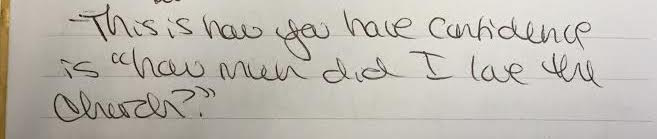 -This is how you have confidence
is "how much did I love the
Church?"